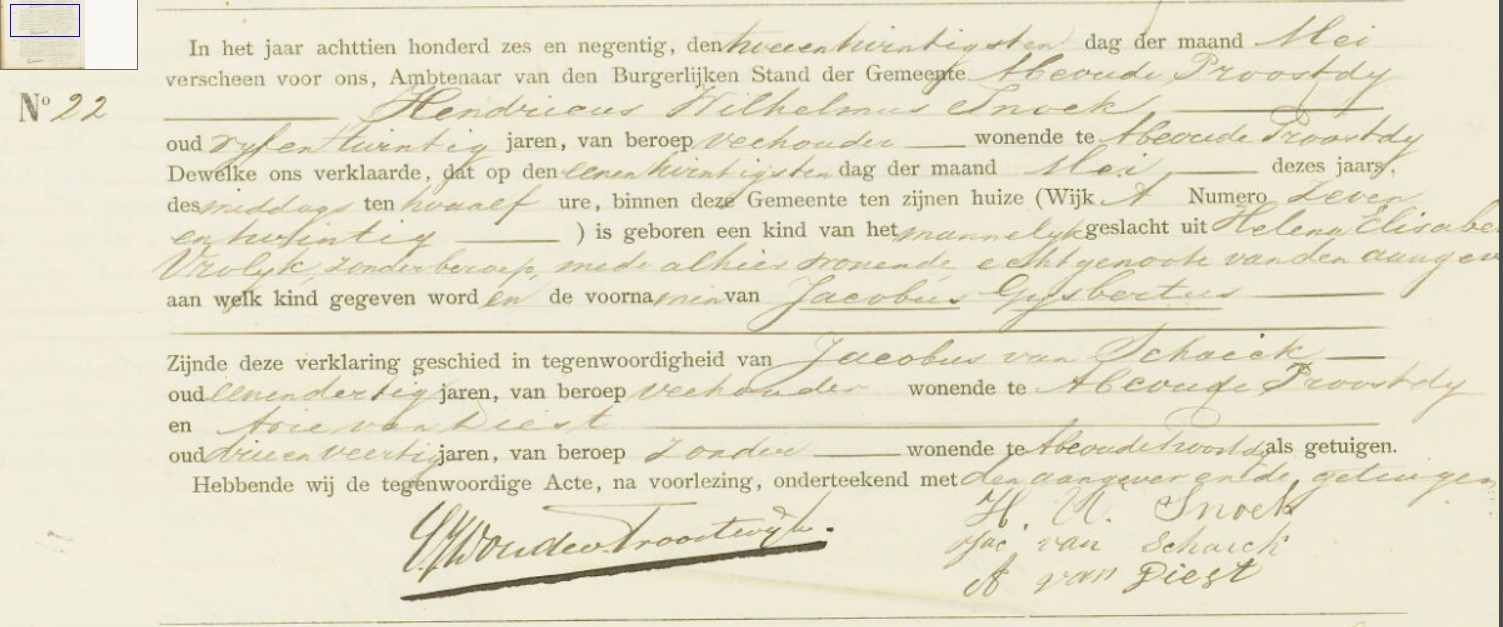 In het jaar achttien honderd zes en negentig, den tweeentwintigsten dag der maand Mei
verscheen voor ons, Ambtenaar van den Burgerlijken Stand der Gemeente Abcoude Proostdy
Nº 22 Hendricus Wilhelmus Snoek
oud vyfentwintig jaren, van beroep veehouder wonende te Abcoude Proostdy
Dewelke ons verklaarde, dat op den eenentwintigsten dag der maand Mei dezes jaars,
des middags ten twaalf ure, binnen deze Gemeente ten zijnen huize (Wijk A Numero zeven
entwintig ) is geboren een kind van het mannelyk geslacht uit Helena Elisabe
Vrolyk, zonder beroep, mede alhier wonende echtgenoote van den aangev
aan welk kind gegeven worden de voornamen van Jacobus Gysbertus
Zijnde deze verklaring geschied in tegenwoordigheid van Jacobus van Schaick
oud eenendertig jaren, van beroep veehouder wonende te Abcoude Proostdy
en Arie van Diest
oud drieenveertig jaren, van beroep zonder wonende te Abcoude Proostdy als getuigen.
Hebbende wij de tegenwoordige Acte, na voorlezing, onderteekend met den aangever en de getuigen
H. W. Snoek
Jac van Schaick
A van Diest